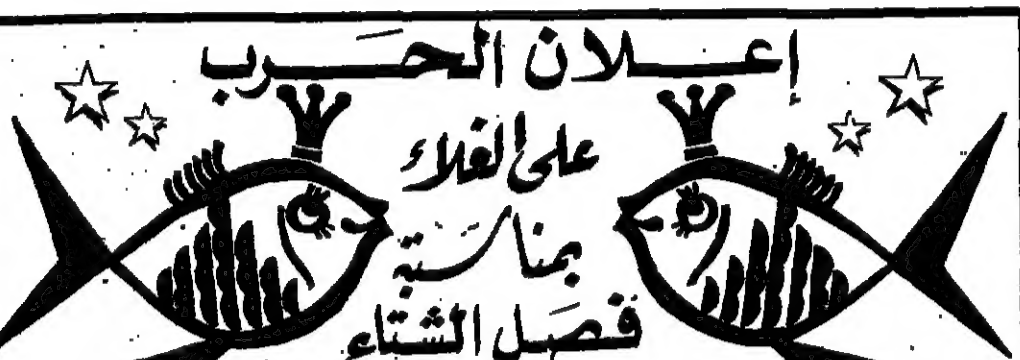 إعلان الحرب
على الغلاء
بمناسبة
فصل الشتاء